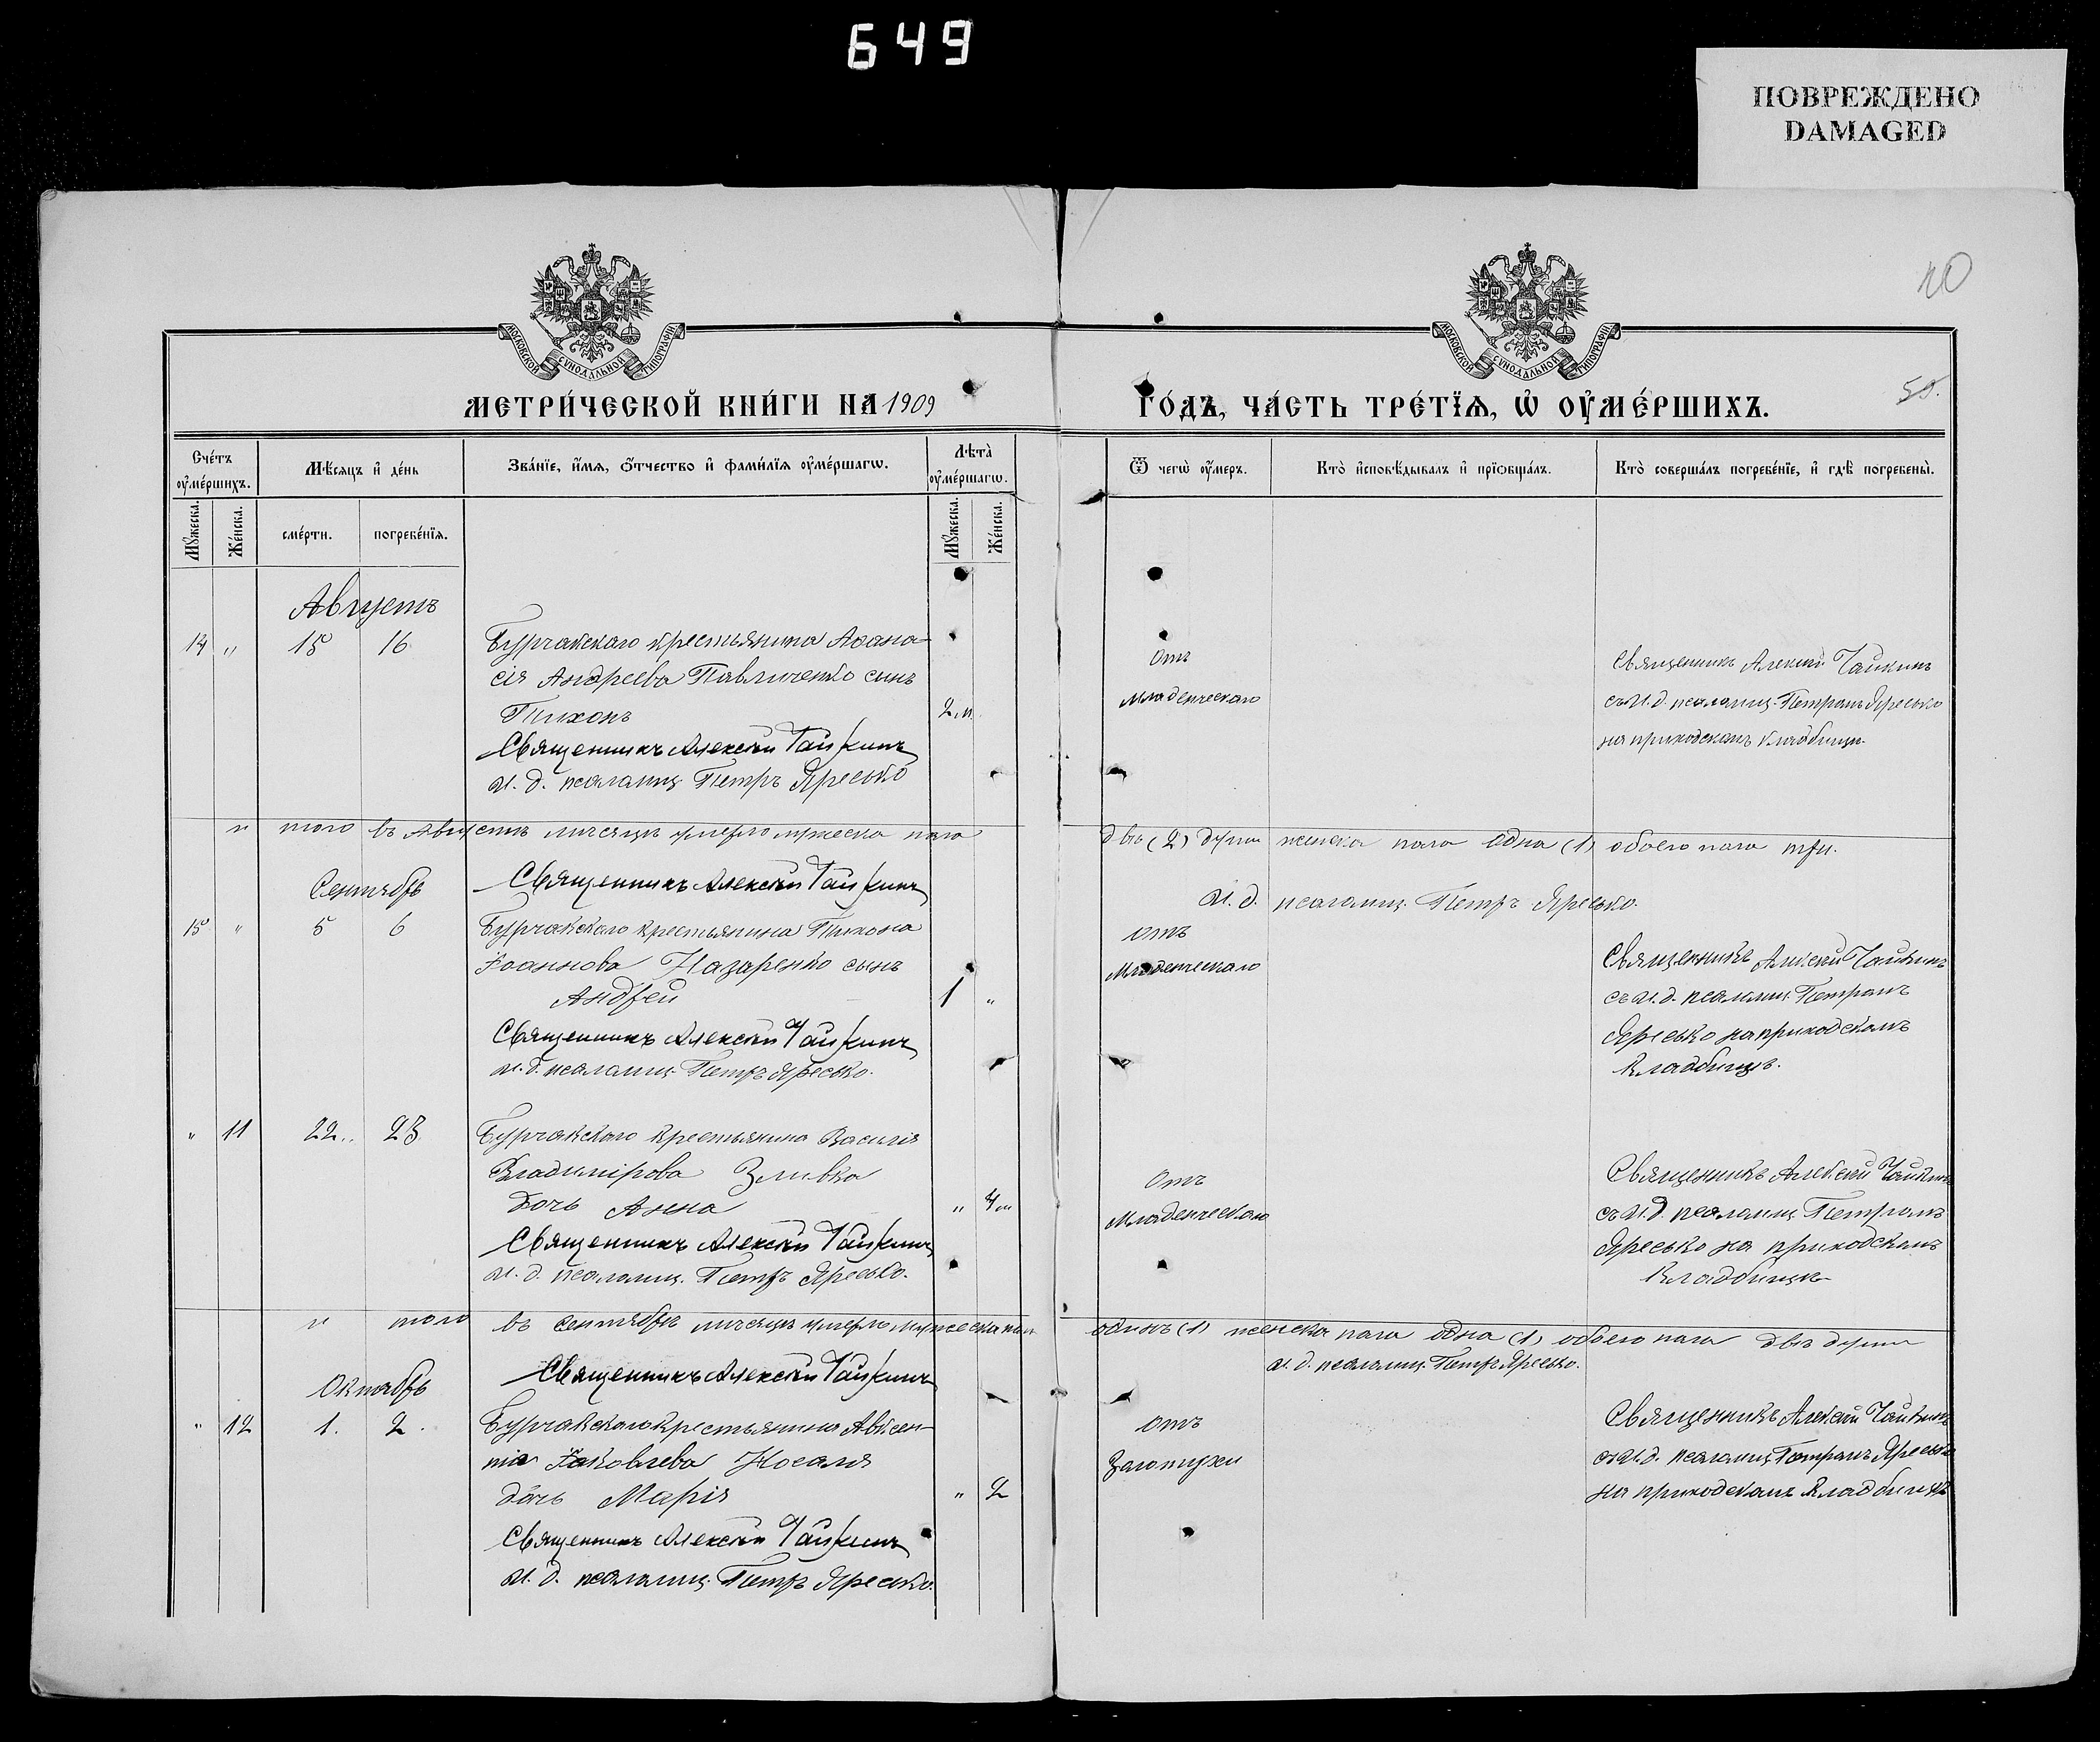 649
ПОВРЕЖДЕНО
DAMAGED
20
МОСКОВСКОЙ СУНОДАЛЬНОЙ ТИПОГРАФІИ
МОСКОВСКОЙ СУНОДАЛЬНОЙ ТИПОГРАФІИ
МЕТРИ́ЧЕСКОЙ КНИ́ГИ НА 1909
ГО́ДЪ, ЧА́СТЬ ТРЕ́ТЇѦ, Ѡ҆ ОУ҆МЕ́РШИХЪ.
Сче́тъ оу҆ме́ршихъ.
Мѣ́сѧцъ и҆ де́нь
Зва́нїе, и҆́мѧ, ѻ҆́тчество и҆ фами́лїѧ оу҆ме́ршагѡ.
Лѣ́та̀ оу҆ме́ршагѡ.
Ѿ чегѡ̀ оу҆́меръ.
Кто̀ и҆сповѣ́дывалъ и҆ прїѻбща́лъ.
Кто̀ соверша́лъ погребе́нїе, и҆ гдѣ̀ погребены̀.
Мꙋ́жеска.
Же́нска.
сме́рти.
погребе́нїѧ.
Мꙋ́жеска.
Же́нска.
Августъ
14 " 15 16 Бурчакскаго крестьянина Аѳана-
сія Андреева Павличенко сынъ
Тихонъ 2 м.
Священникъ Алексѣй Чайкинъ
И. д. псаломщ. Петръ Яресько
Отъ
младенческаго
Священникъ Алексѣй Чайкинъ
съ И. д. псаломщ. Петромъ Яресько
на приходскомъ кладбищѣ.
итого въ Августѣ мѣсяцѣ умерло мужеска пола
двѣ (2) души женска пола одна (1) обоего пола три.
Священникъ Алексѣй Чайкинъ
И. д. псаломщ. Петръ Яресько.
Сентябрь
15 " 5 6 Бурчакскаго крестьянина Тихона
Іоаннова Назаренко сынъ
Андрей 1 "
Священникъ Алексѣй Чайкинъ
И. д. псаломщ. Петръ Яресько.
отъ
Младенческаго
Священникъ Алексѣй Чайкинъ
съ И. д. псаломщ. Петромъ
Яресько на приходскомъ
кладбищѣ.
" 11 22. 23 Бурчакскаго крестьянина Василія
Владимірова Зливка
дочь Анна " 4 м
Священникъ Алексѣй Чайкинъ
И. д. псаломщ. Петръ Яресько.
Отъ
Младенческаго
Священникъ Алексѣй Чайкинъ
съ И. д. псаломщ. Петромъ
Яресько на приходскомъ
кладбищѣ
итого въ сентябрѣ мѣсяцѣ умерло мужеска пола
одинъ (1) женска пола одна (1) обоего пола двѣ души
Священникъ Алексѣй Чайкинъ
И. д. псаломщ. Петръ Яресько.
Октябрь
" 12 1. 2. Бурчакскаго крестьянина Авксен-
тія Іаковлева Носаля
дочь Марія " 2
Священникъ Алексѣй Чайкинъ
И. д. псаломщ. Петръ Яресько.
отъ
Золотухи
Священникъ Алексѣй Чайкинъ
съ И. д. псаломщ. Петромъ Яресько
на приходскомъ кладбищѣ